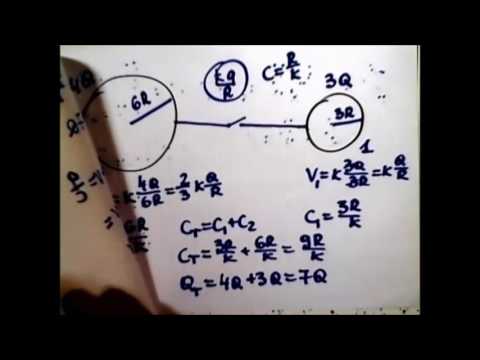 4Q
6R
KQ/R
C=R/K
3Q
3R
1
= K 4Q/6R = 2/3 K Q/R
V₁=K 3Q/3R=K Q/R
6R/K
C_T=C₁+C₂
C₁=3R/K
C_T=3R/K+6R/K=9R/K
Q_T=4Q+3Q=7Q